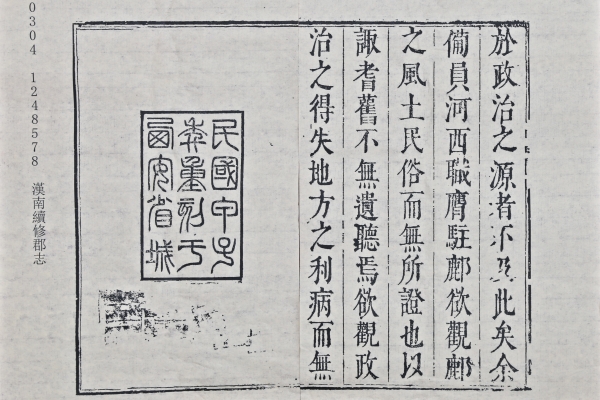 於政治之源者不及此矣余
備員河西職膺駐鄜欲觀鄜
之風土民俗而無所證也以
諏耆舊不無遺聽焉欲觀政
治之得失地方之利病而無
民國甲子
秊重刻于
西安省城
0304 1248578 漢南續修郡志